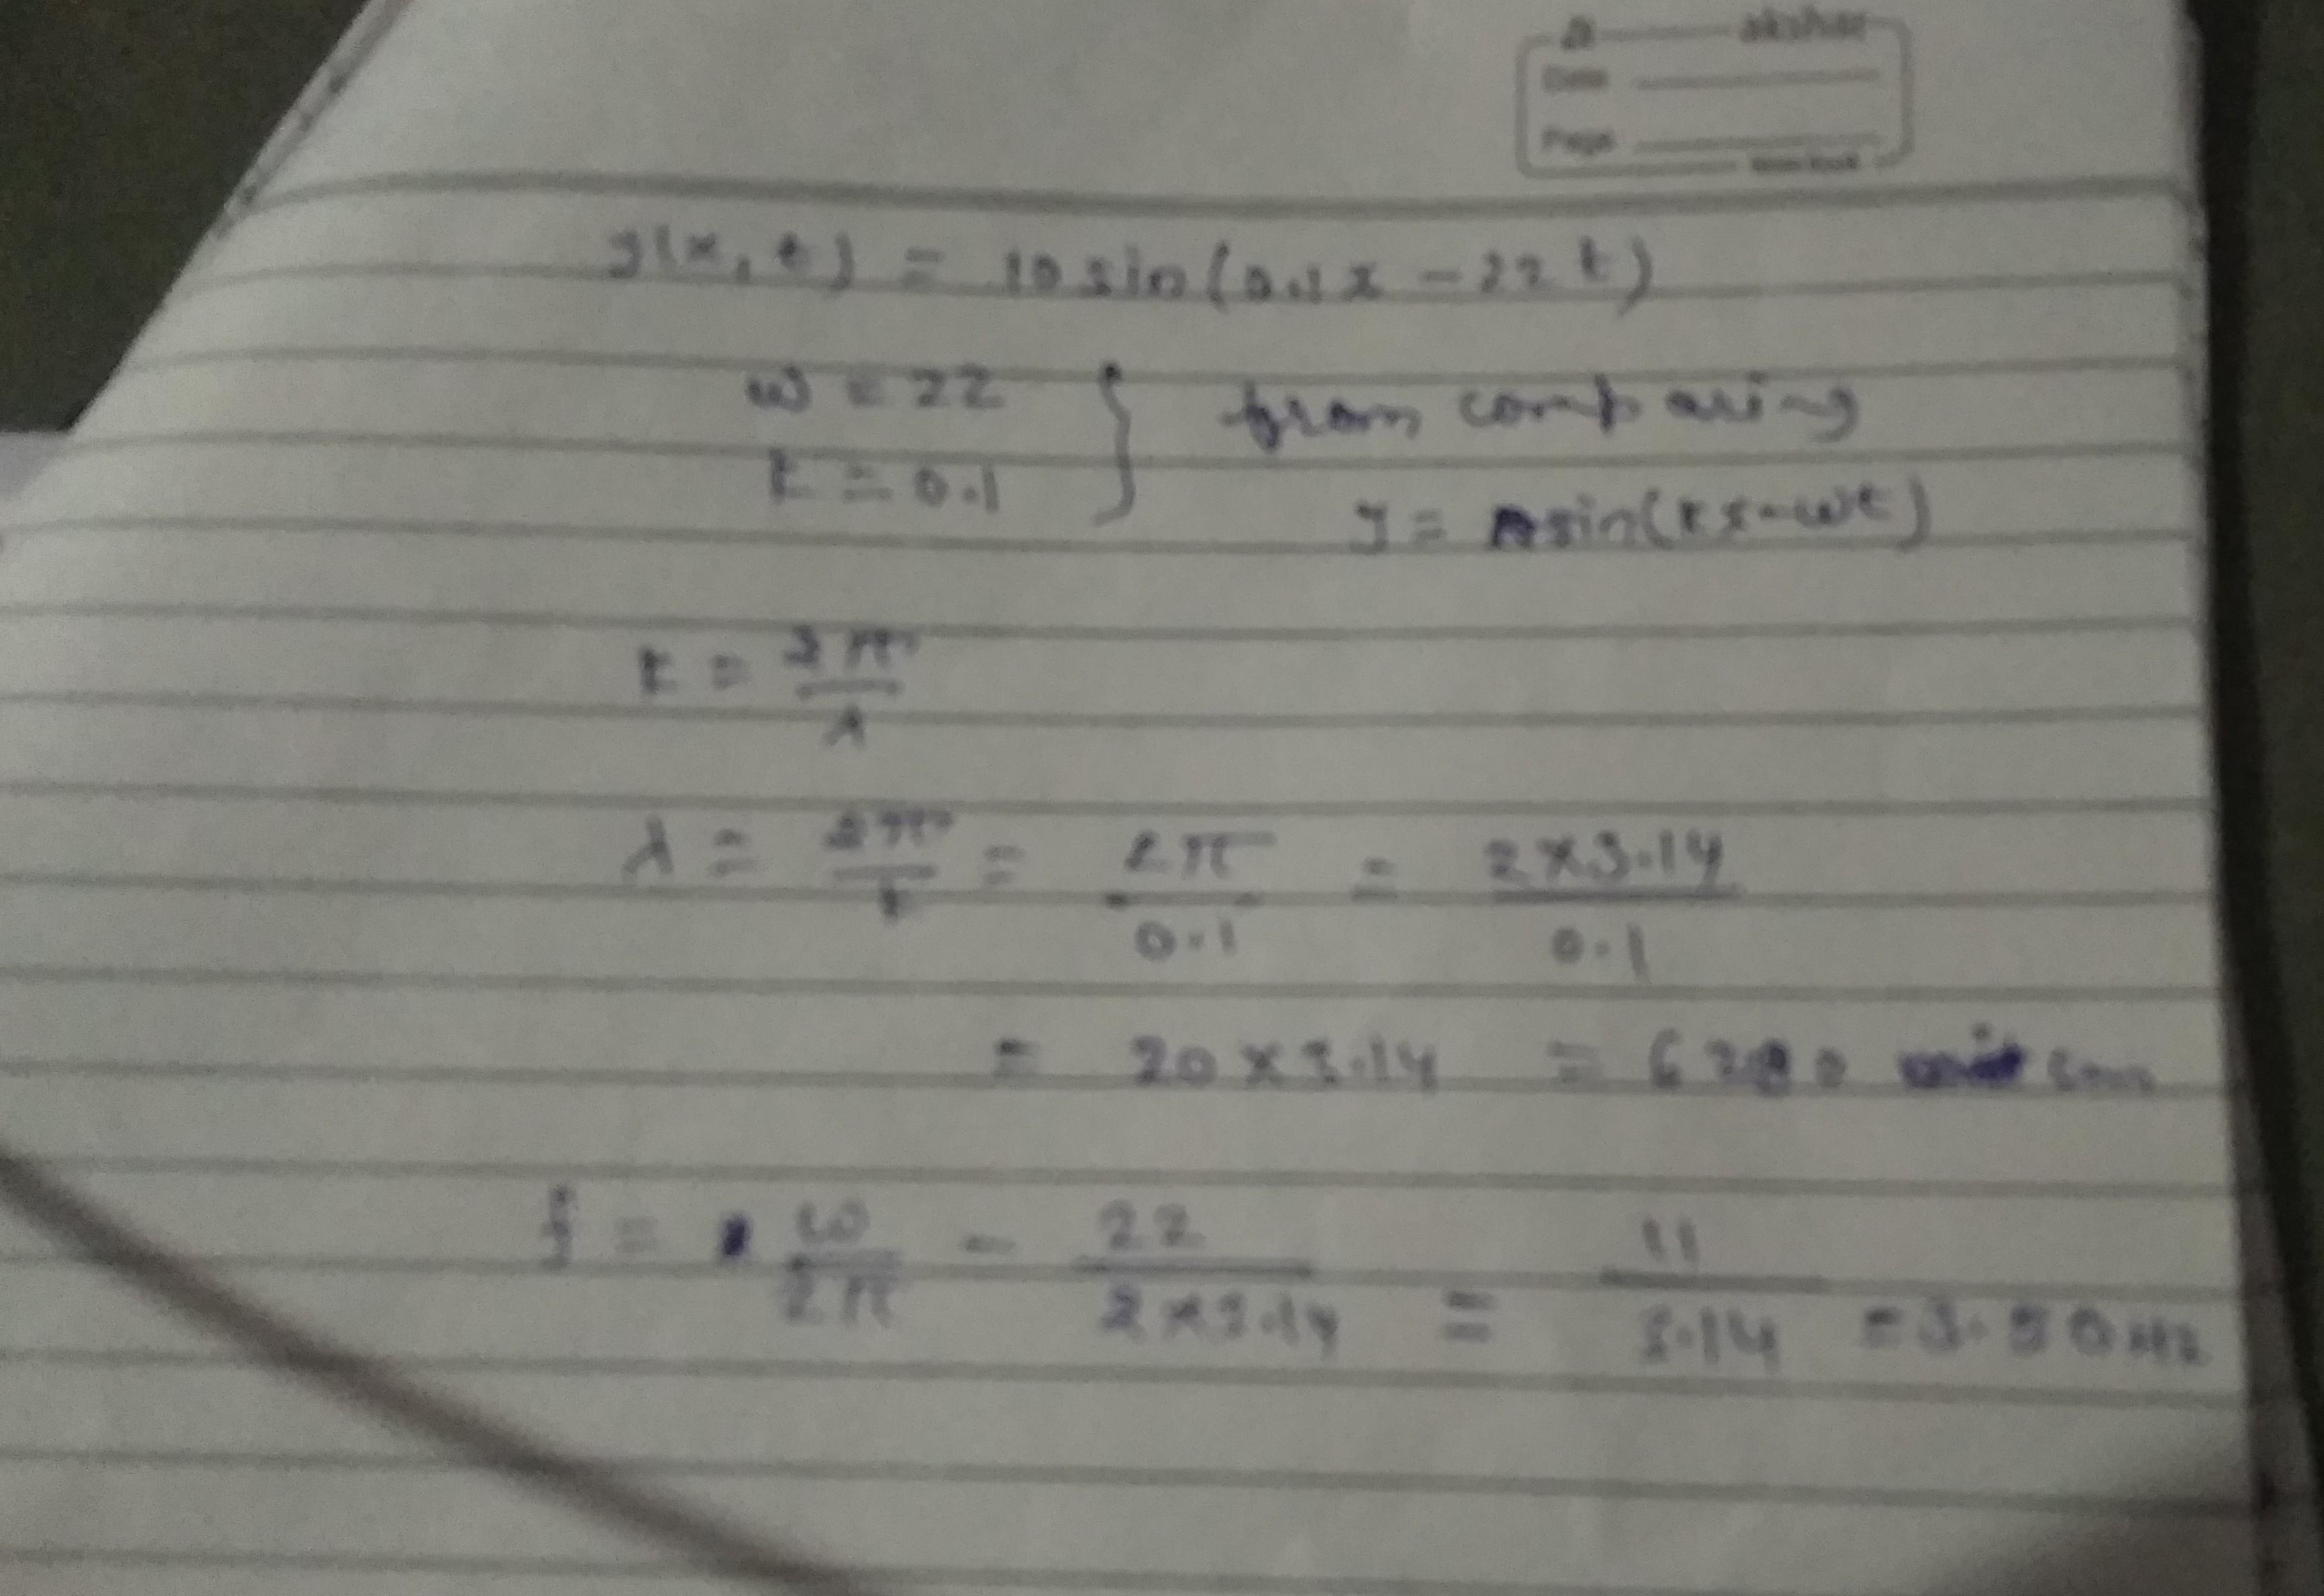 akshar
Date
Page
y(x, t) = 10 sin(0.1x - 22t)
ω = 22 } from comparing
k = 0.1 y = A sin(kx - ωt)
k = 2π/λ
λ = 2π/k = 2π/0.1 = 2×3.14/0.1
= 20 × 3.14 = 6280 cm
f = ω/2π = 22/2×3.14 = 11/3.14 = 3.50 Hz